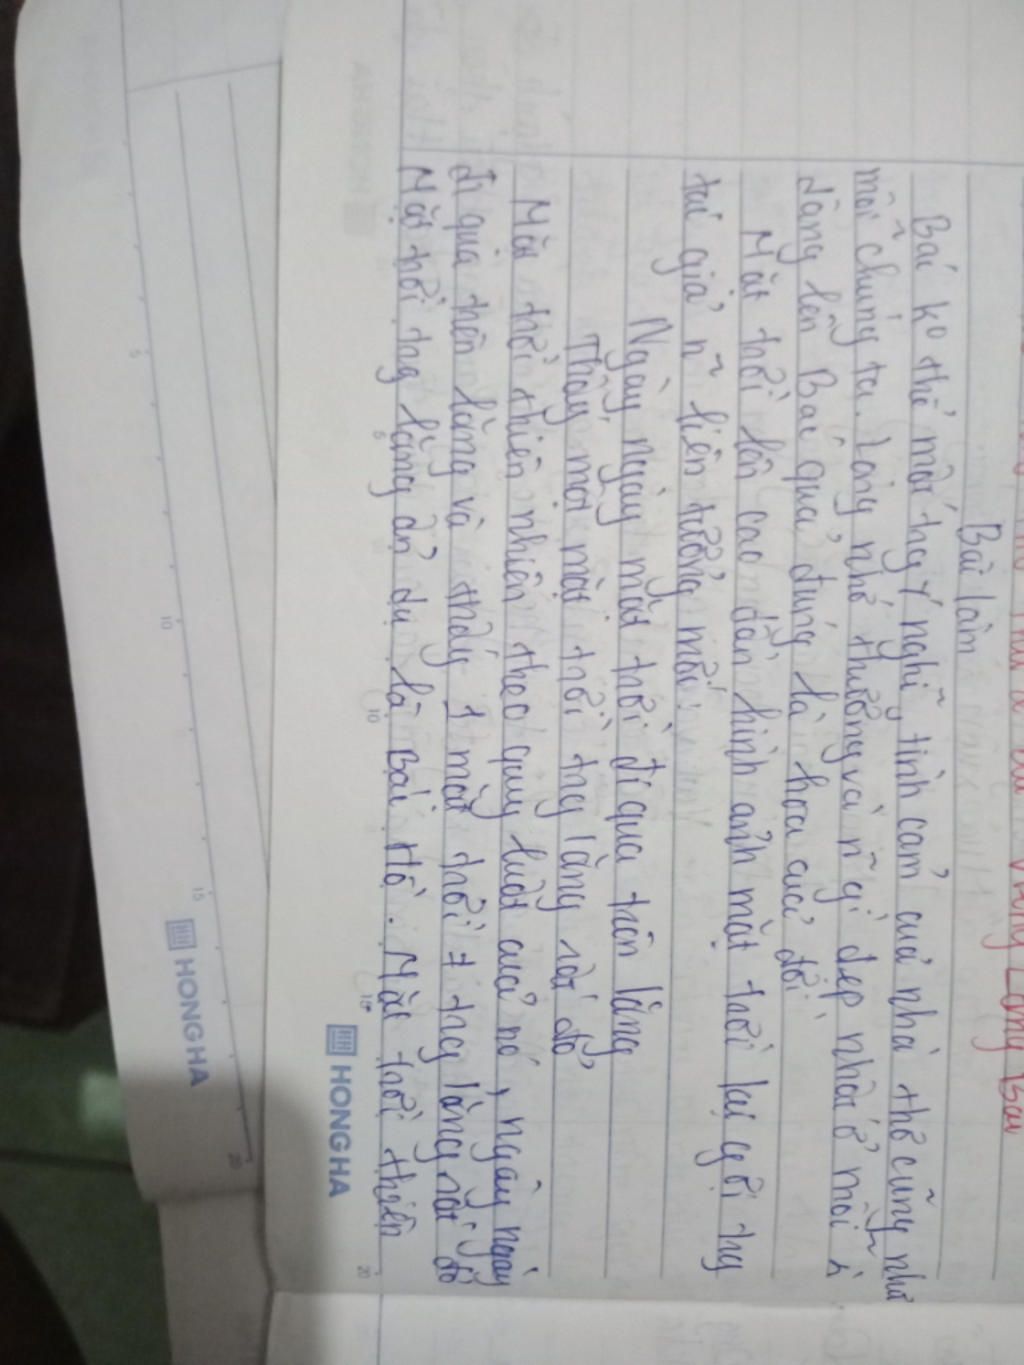 Viếng Lăng Bác
Bài làm
Bác ko thể mất trg ý nghĩ, tình cảm của nhà thơ cũng như
mỗi chúng ta. Lòng nhớ thương và n~ gì đẹp nhất ở mỗi
dâng lên Bác quả đúng là hoa của đời.
Mặt trời lên cao dần hình ảnh mặt trời lại gợi trg
tác giả n~ liên tưởng mới:
Ngày ngày mặt trời đi qua trên lăng
Thấy một mặt trời trg lăng rất đỏ
Mặt trời thiên nhiên theo quy luật của nó, ngày ngày
đi qua trên lăng và thấy 1 mặt trời # trg lăng rất đỏ
Mặt trời trg lăng ẩn dụ là Bác Hồ. Mặt trời thiên
HONG HA
HONG HA
5
10
15
20
5
10
15
20